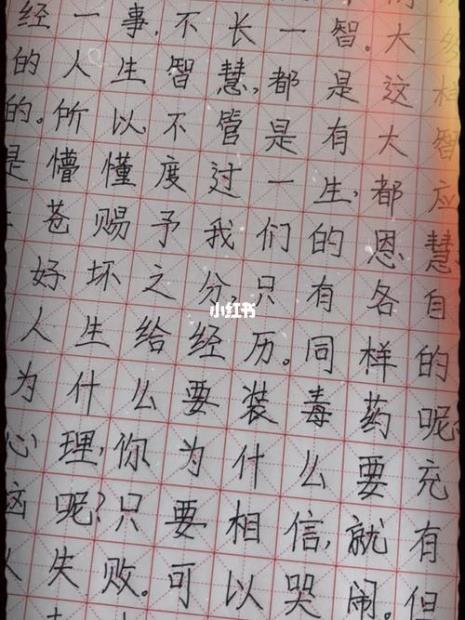 经一事,不长一智。大
的人生智慧,都是这样
的。所以不管是有大智
是懵懂度过一生,都应
苍赐予我们的恩慧
好坏之分,只有各自
人生给经历。同样的
为什么要装毒药呢
心理,你为什么要充
呢?只要相信,就有
失败。可以哭闹。但
小红书